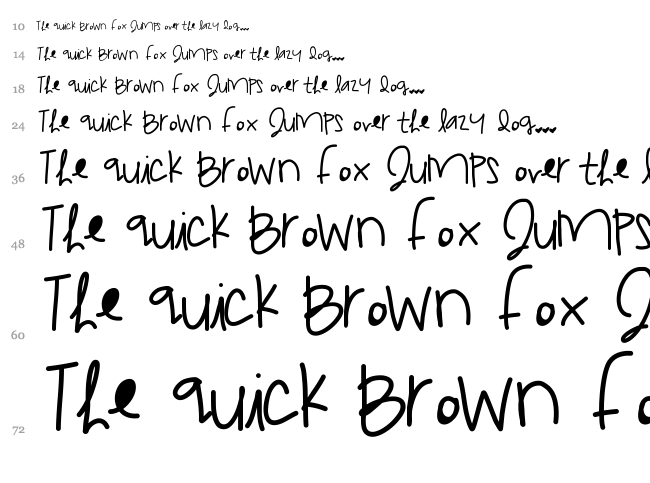 10 The quick Brown fox Jumps over the lazy Dog...
14 The quick Brown fox Jumps over the lazy Dog...
18 The quick Brown fox Jumps over the lazy Dog...
24 The quick Brown fox Jumps over the lazy Dog...
36 The quick Brown fox Jumps over the l
48 The quick Brown fox Jumps
60 The quick Brown fox J
72 The quick Brown fo